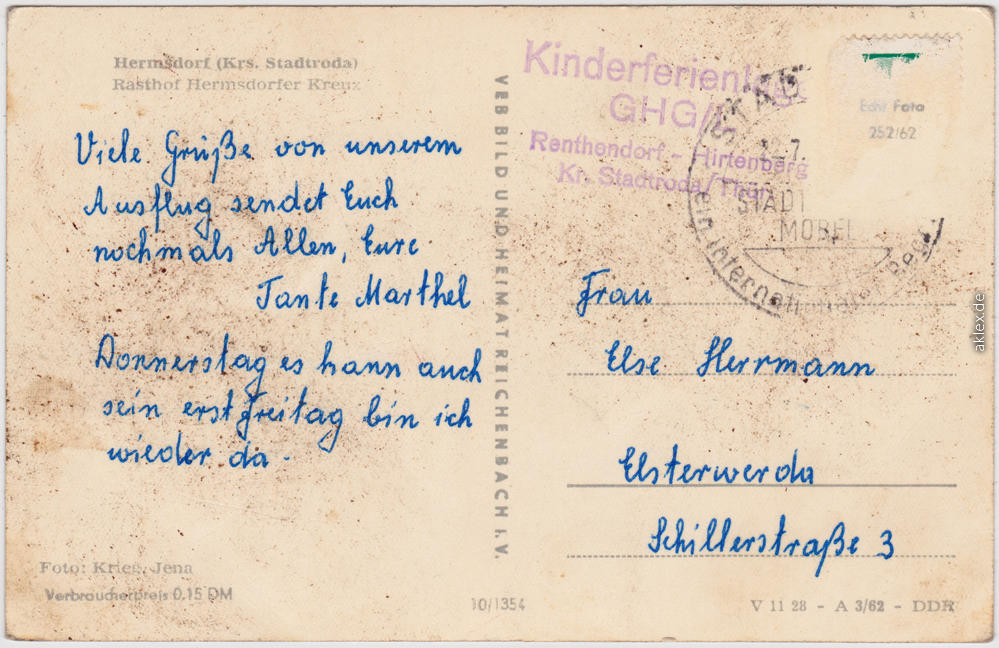 Hermsdorf (Krs. Stadtroda)
Rasthof Hermsdorfer Kreuz
Viele Grüße von unserem
Ausflug sendet Euch
nochmals Allen, Eure
Tante Marthel
Donnerstag es kann auch
sein erst Freitag bin ich
wieder da.
Foto: Krieg, Jena
Verbraucherpreis 0,15 DM
VEB BILD UND HEIMAT REICHENBACH i. V.
10/1354
Kinderferienlager
GHG/
Renthendorf - Hirtenberg
Kr. Stadtroda/Thür.
STADT
22.7.
STADT
MÖBEL
Internationaler
Echt Foto
252/62
Frau
Else Herrmann
Elsterwerda
Schillerstraße 3
V 11 28 - A 3/62 - DDR
aklex.de